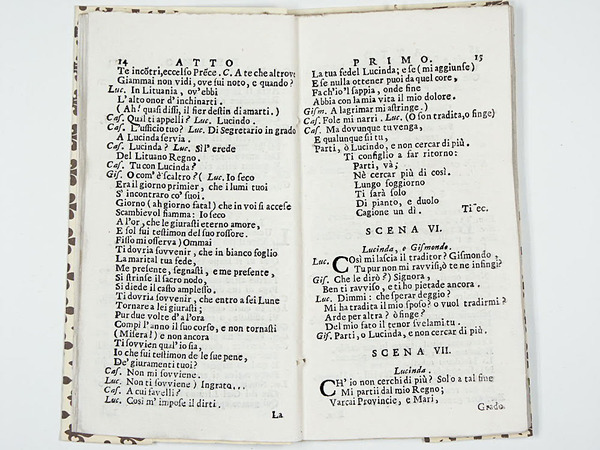 14 ATTO
Te incōtri, eccelso Prēce. C. A te che altrove
Giammai non vidi, ove sui noto, e quando?
Luc. In Lituania, ov'ebbi
L'alto onor d'inchinarti.
(Ah! quasi dissi, il fier destin di amarti.)
Cas. Qual ti appelli? Luc. Lucindo.
Cas. L'ufficio tuo? Luc. Di Segretario in grado
A Lucinda serviva.
Cas. Lucinda? Luc. Sì l'erede
Del Lituano Regno.
Cas. Tu con Lucinda?
Gis. O com' è scaltro? ( Luc. Io seco
Era il giorno primier, che i lumi tuoi
S'incontraro co' suoi.
Giorno (ah giorno fatal) che in voi si accese
Scambievol fiamma: Io seco
A l'or, che le giurasti eterno amore,
E sol fui testimon del suo rossore.
Fisso mi osserva) Ommai
Ti dovria sovvenir, che in bianco foglio
La marital tua fede,
Me presente, segnasti, e me presente,
Si strinse il sacro nodo,
Si diede il casto amplesso,
Ti dovria sovvenir, che entro a sei Lune
Tornare a lei giurasti;
Pur due volte d'al'ora
Compì l'anno il suo corso, e non tornasti
(Misera!) e non ancora
Ti sovvien qual'io sia,
Io che fui testimon de le sue pene,
De' giuramenti tuoi?
Cas. Non mi sovviene.
Luc. Non ti sovviene) Ingrato...
Cas. A cui favelli?
Luc. Così m'impose il dirti.
La
PRIMO. 15
La tua fedel Lucinda; e se (mi aggiunse)
E se nulla ottener puoi da quel core,
Fa ch'io'l sappia, onde fine
Abbia con la mia vita il mio dolore.
Gism. A lagrimar mi astringe.)
Cas. Fole mi narri. Luc. (O son tradita, o finge)
Cas. Ma dovunque tu venga,
E qualunque sii tu,
Parti, ò Lucindo, e non cercar di più.
Ti consiglio a far ritorno:
Parti, và;
Nè cercar più di così.
Lungo soggiorno
Ti sarà solo
Di pianto, e duolo
Cagione un dì. Ti ec.
SCENA VI.
Lucinda, e Gismondo.
Luc. Così mi lascia il traditor? Gismondo,
Tu pur non mi ravvisi, ò te ne infingi?
Gis. Che le dirò?) Signora,
Ben ti ravviso, e ti ho pietade ancora.
Luc. Dimmi: che sperar deggio?
Mi ha tradita il mio sposo? o vuol tradirmi?
Arde per altra? ò finge?
Del mio fato il tenor svelami tu.
Gis. Parti, o Lucinda, e non cercar di più.
SCENA VII.
Lucinda.
CH' io non cerchi di più? Solo a tal fine
Mi partii dal mio Regno;
Varcai Provincie, e Mari,
Grado.